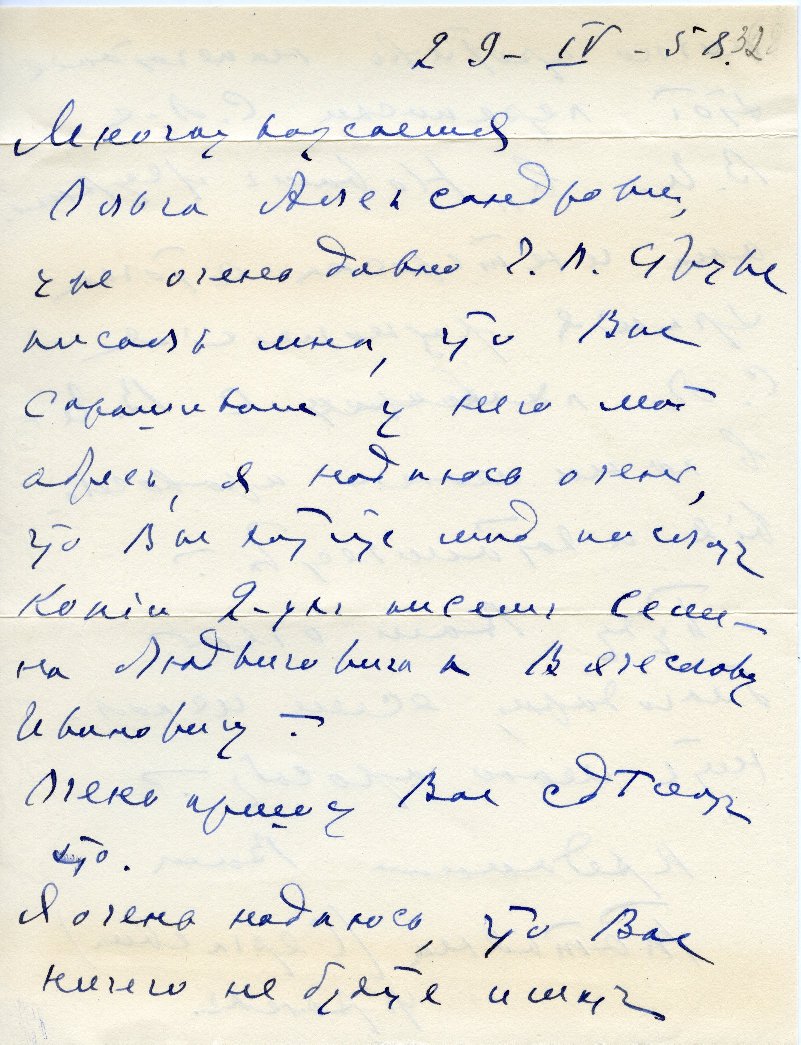 29-IV-58. 32
Многоуважаемая
Ольга Александровна,
уже очень давно Г. П. Струве
писалъ мнѣ, что Вы
спрашивали у него мой
адресъ, я надѣюсь очень,
что Вы хотите мнѣ послать
Копіи 2-ухъ писемъ Семе-
на Людвиговича к Вячеславу
Ивановичу?
Очень прошу Вас сдѣлать
это.
Я очень надѣюсь, что Вы
ничего не будете имѣть